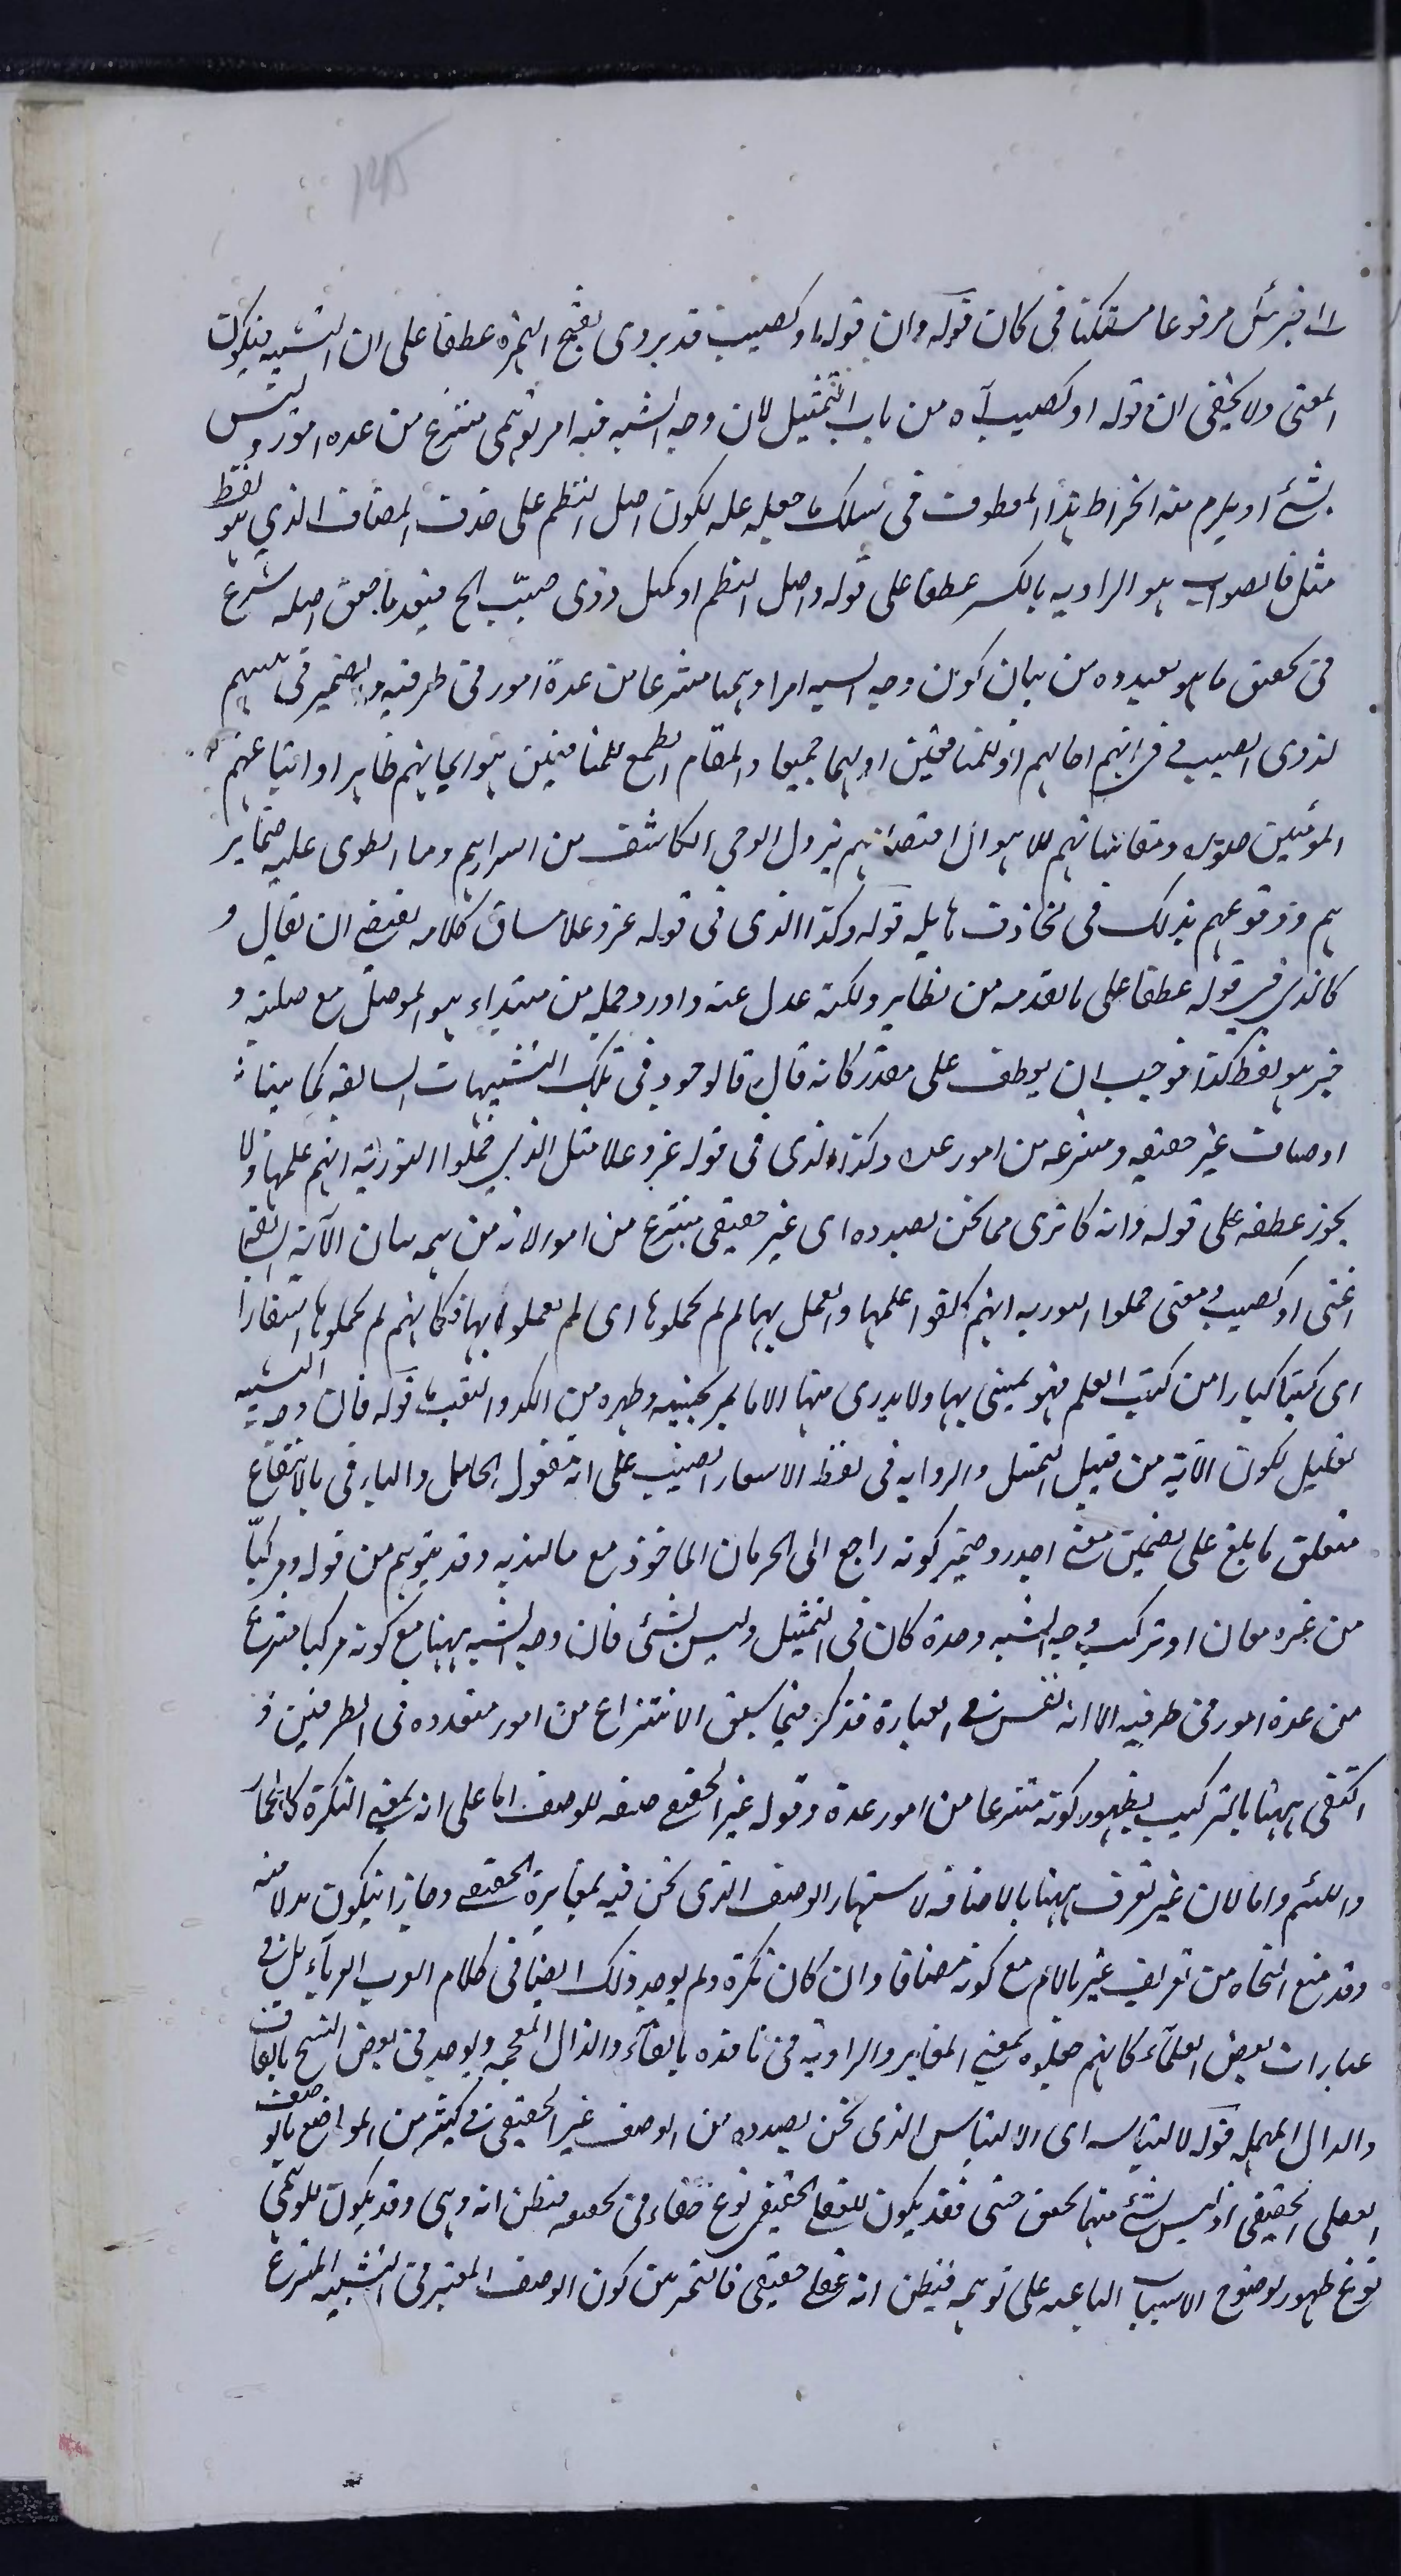 خبر مثل مرفوعا مستكنا فى كان قوله وان قوله او كصيب قد يروى بفتح الهمزة عطفا على ان التشبيه فيكون
المعنى ولا يخفى ان قوله او كصيب آه من باب التمثيل لان وجه الشبه فيه امر توهمى منتزع من عدة امور وليس
بشئ اذ يلزم منه انخراط هذا المعطوف فى سلك ما جعله علة لكون اصل النظم على حذف المضاف الذي هو لفظ
مثل فالصواب هو الرواية بالكسر عطفا على قوله واصل النظم او كمثل ذوى صيب الخ فبعد ما حقق اصله شرع
فى تحقيق ما هو بصدده من بيان كون وجه الشبه امرا وهميا منتزعا من عدة امور فى طرفيه والضمير فى
لذوى الصيب او للمنافقين او لهما جميعا والمقام المطمع للمنافقين هو ايمانهم ظاهرا واتباعهم
المؤمنين صلوة ومقاساتهم للاهوال افتضاحهم بنزول الوحى الكاشف من اسرارهم وما انطوى عليه ضماير
هم ووقوعهم بذلك فى مخاوف هايلة قوله وكذا الذى فى قوله عز وعلا مساق كلامه يقتضى ان يقال و
كالذى فى قوله عطفا على ما تقدمه من نظاير ولكنه عدل عنه واورد جملة من مبتداء هو الموصول مع صلته و
خبر هو لفظ كذا فوجب ان يعطف على مقدر كانه قال فالوجوه فى تلك التشبيهات السالفة كما بينا
اوصاف غير حقيقية ومنتزعة من امور عدة وكذا الذى فى قوله عز وعلا مثل الذين حملوا التورية انهم علمها ولا
يجوز عطفه على قوله وانه كما ترى مما نحن بصدده اى غير حقيقى منتزع من امور لانه من تتمة بيان الآية السابقة
اعنى او كصيب ومعنى حملوا التورية انهم كلفوا علمها والعمل بها ثم لم يحملوها اى لم يعملوا بها فكانهم لم يحملوها اسفارا
اى كتبا كبارا من كتب العلم فهو يمشى بها ولا يدرى منها الا ما يمر بجنبيه وظهره من الكد والتعب قوله فان وجه التشبيه
تعليل لكون الآية من قبيل التمثيل والرواية فى لفظ الاسفار النصب على انه مفعول الحامل والباء فى بالانتفاع
متعلق ما بلغ على تضمين معنى اجدر وضمير كونه راجع الى الحرمان الماخوذ مع ما لذبه وقد يتوهم من قوله ومركبا
من غيره معان او تركيب وجه الشبه وحده كان فى التمثيل وليس بشئ فان وجه الشبه ههنا مع كونه مركبا منتزع
من عدة امور فى طرفيه الا انه تفنن فى العبارة فذكر فيما سبق الانتزاع من امور متعددة فى الطرفين و
اكتفى ههنا بالتركيب لظهور كونه منتزعا من امور عدة وقوله غير الحقيقى صفة للوصف اما على انه بمعنى النكرة كالحمار
واللئيم واما لان غير تعرف ههنا بالاضافة لاشتهار الوصف الذى نحن فيه بمغايرة الحقيقى وجاز ان يكون بدلا منه
وقد منع النحاه من تعريف غير باللام مع كونه مضافا وان كان نكرة ولم يوجد ذلك ايضا فى كلام العرب العرباء بل فى
عبارات بعض العلماء كانهم جعلوه بمعنى المغاير والرواية فى نافذه بالفاء والذال المعجمه ويوجد فى بعض النسخ بالقاف
والدال المهملة قوله لالتباسه اى الالتباس الذى نحن بصدده من الوصف غير الحقيقى فى كثير من المواضع بالوصف
العقلى الحقيقى اذ ليس لشئ منهما تحقق حسى فقد يكون للعقلى الحقيقى نوع خفاء فى تحققه فيظن انه وهمى وقد يكون للوهمى
نوع ظهور لوضوح الاسباب الباعثة على توهمه فيظن انه عقلى حقيقى فالتمرين كون الوصف المعتبر فى التشبيه المنتزع